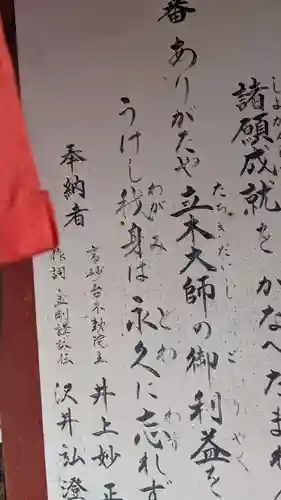 諸願成就をかなへたまれ
しよがん
番
ありがたや立木大師の御利益を
たちきだいし
ごりやく
うけし我身は永久に忘れず
わがみ
とわ
わす
奉納者
井上妙正
作詞
沢井弘澄